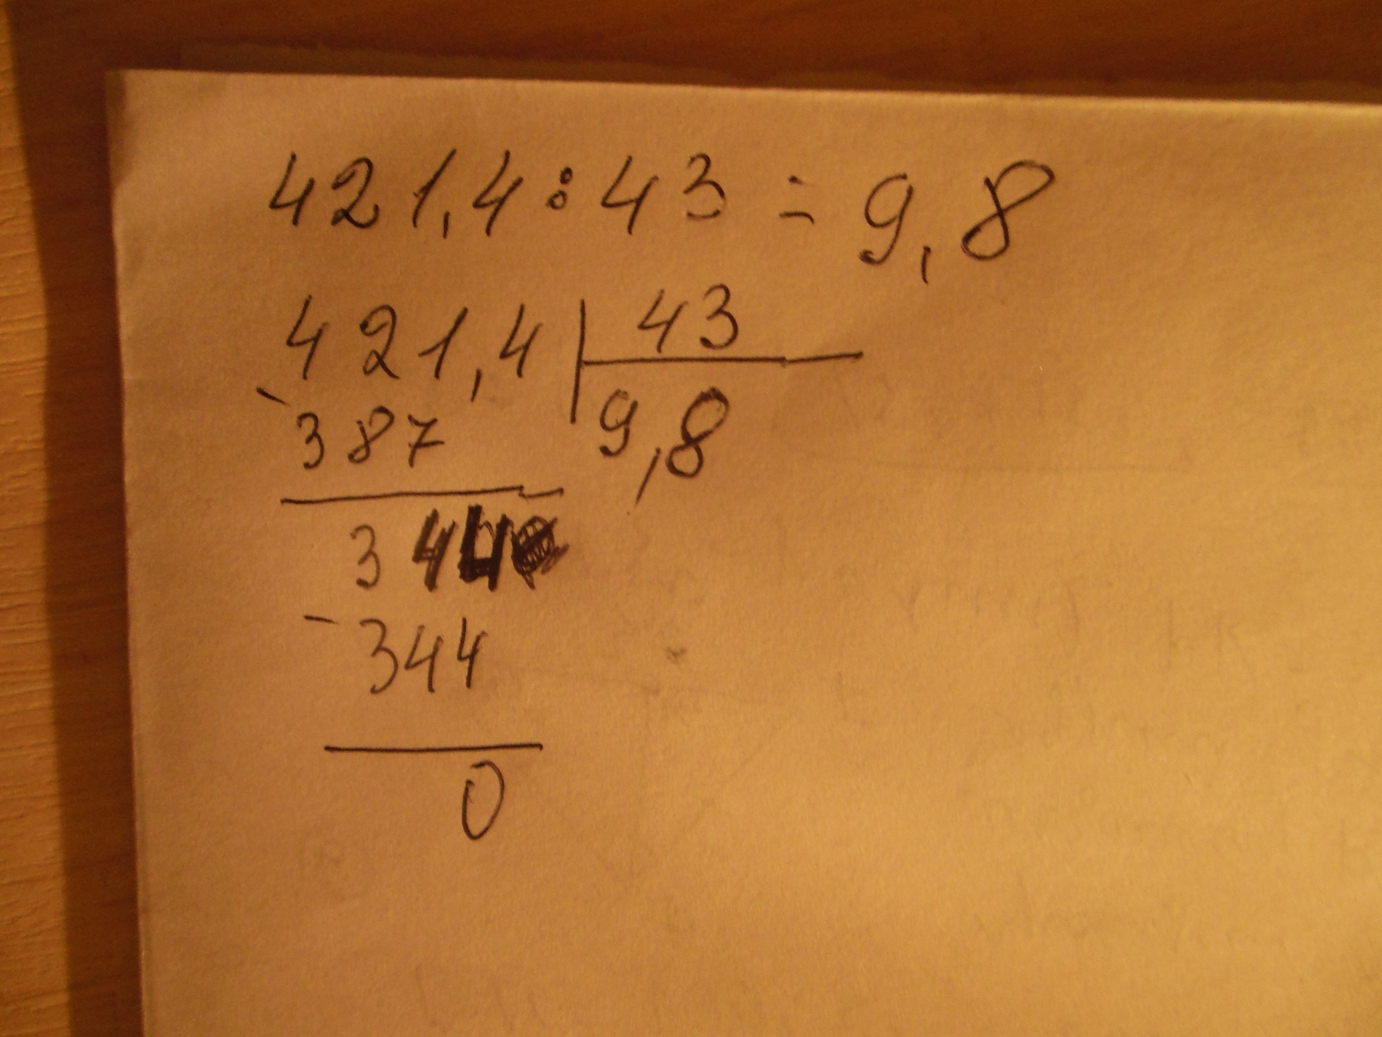 421,4:43 = 9,8
421,4 43
- 387 9,8
344
- 344
0